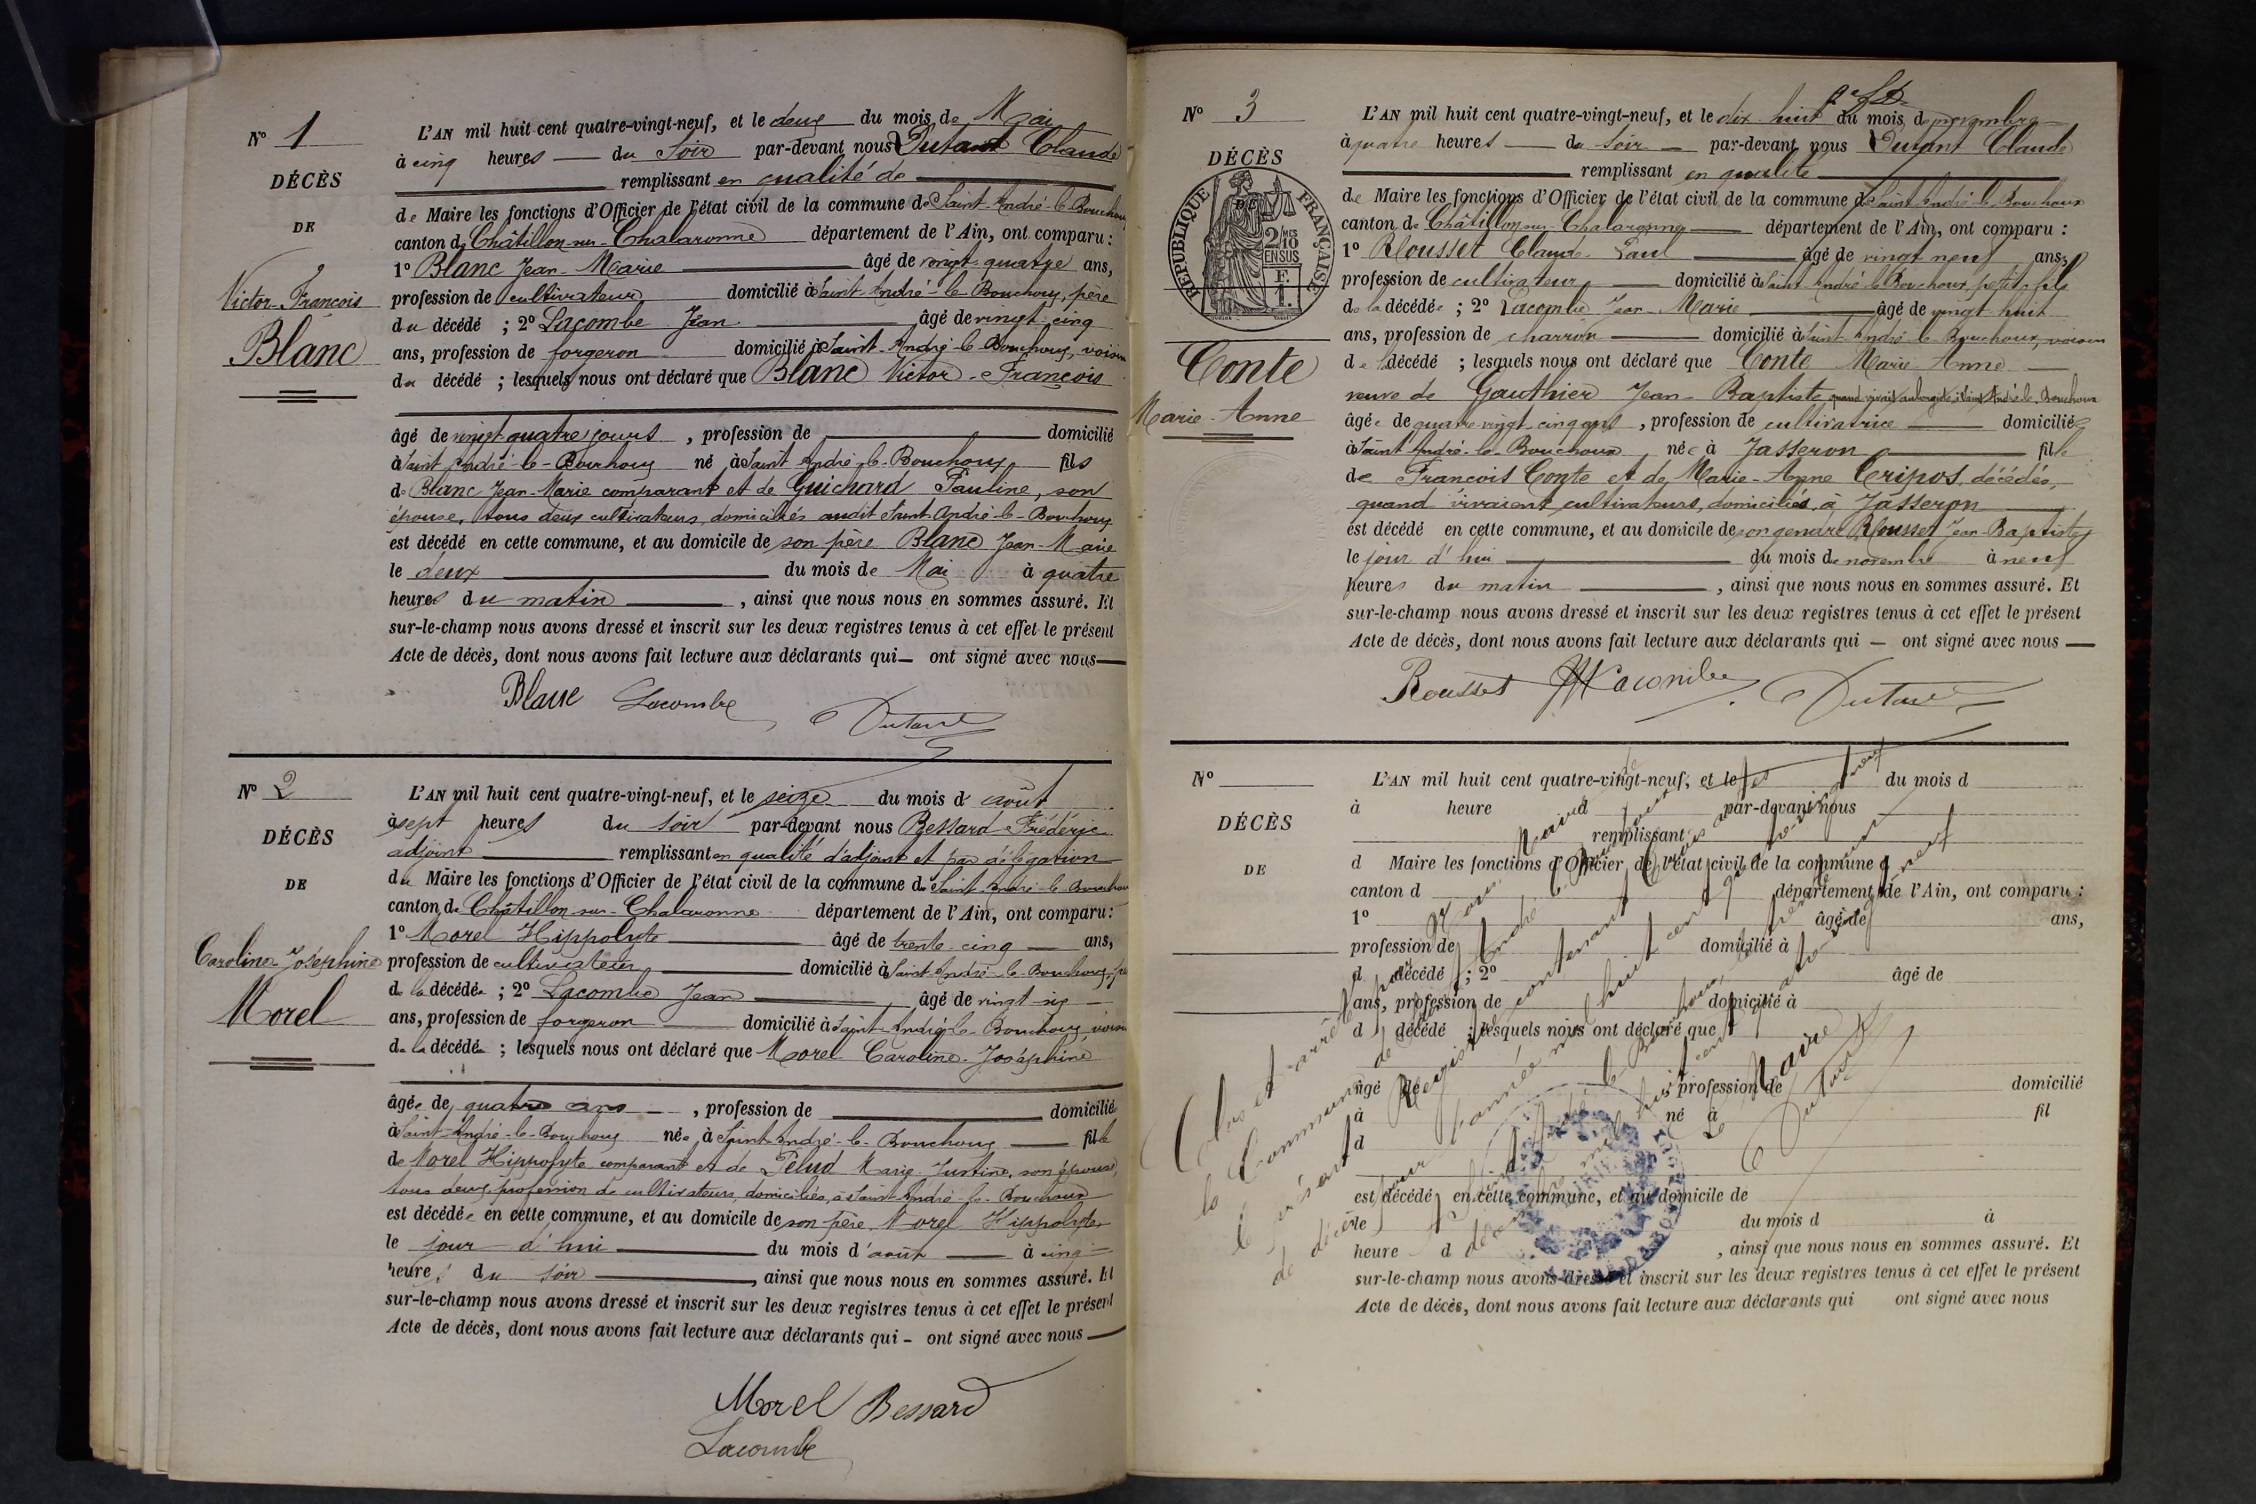 N° 1
DÉCÈS
DE
Victor-François
Blanc
L'AN mil huit cent quatre-vingt-neuf, et le deux du mois de Mai
à cinq heures du Soir par-devant nous Dutant Claude
remplissant en qualité de
de Maire les fonctions d'Officier de l'état civil de la commune de Saint-André-le-Bouchoux
canton de Châtillon-sur-Chalaronne département de l'Ain, ont comparu :
1° Blanc Jean-Marie âgé de vingt-quatre ans,
profession de cultivateur domicilié à Saint-André-le-Bouchoux, père
du décédé ; 2° Lacombe Jean âgé de vingt-cinq
ans, profession de forgeron domicilié à Saint-André-le-Bouchoux, voisin
du décédé ; lesquels nous ont déclaré que Blanc Victor-François
âgé de vingt quatre jours , profession de domicilié
à Saint André-le-Bouchoux né à Saint André-le-Bouchoux fils
de Blanc Jean-Marie comparant et de Guichard Pauline, son
épouse, tous deux cultivateurs, domiciliés audit Saint-André-le-Bouchoux
est décédé en cette commune, et au domicile de son père Blanc Jean-Marie
le deux du mois de Mai à quatre
heures du matin , ainsi que nous nous en sommes assuré. Et
sur-le-champ nous avons dressé et inscrit sur les deux registres tenus à cet effet le présent
Acte de décès, dont nous avons fait lecture aux déclarants qui – ont signé avec nous
Blanc Lacombe Dutant
N° 2
DÉCÈS
DE
Caroline-Joséphine
Morel
L'AN mil huit cent quatre-vingt-neuf, et le seize du mois d'août
à sept heures du soir par-devant nous Bessard Frédéric
adjoint remplissant en qualité d'adjoint et par délégation
du Maire les fonctions d'Officier de l'état civil de la commune de Saint-André-le-Bouchoux
canton de Châtillon-sur-Chalaronne département de l'Ain, ont comparu :
1° Morel Hippolyte âgé de trente-cinq ans,
profession de cultivateur domicilié à Saint-André-le-Bouchoux, père
de la décédée ; 2° Lacombe Jean âgé de vingt six
ans, profession de forgeron domicilié à Saint-André-le-Bouchoux, voisin
de la décédée ; lesquels nous ont déclaré que Morel Caroline-Joséphine
âgée de quatre ans , profession de domicilié
à Saint-André-le-Bouchoux née à Saint-André-le-Bouchoux fille
de Morel Hippolyte comparant et de Pélud Marie-Justine, son épouse,
tous deux profession de cultivateurs, domiciliés, à Saint-André-le-Bouchoux
est décédée en cette commune, et au domicile de son père, Morel Hippolyte
le jour d'hui du mois d'août à cinq
heures du soir , ainsi que nous nous en sommes assuré. Et
sur-le-champ nous avons dressé et inscrit sur les deux registres tenus à cet effet le présent
Acte de décès, dont nous avons fait lecture aux déclarants qui – ont signé avec nous
Morel Bessard
Lacombe
N° 3
DÉCÈS
DE
RÉPUBLIQUE FRANÇAISE
2/10 MES
EN SUS
F.
1.
Conte
Marie-Anne
L'AN mil huit cent quatre-vingt-neuf, et le dix huit du mois de novembre
à quatre heures du soir par-devant nous Dutant Claude
remplissant en qualité
de Maire les fonctions d'Officier de l'état civil de la commune de Saint-André-le-Bouchoux
canton de Châtillon-sur-Chalaronne département de l'Ain, ont comparu :
1° Rousset Claude-Paul âgé de vingt neuf ans,
profession de cultivateur domicilié à Saint-André-le-Bouchoux, petit-fils
de la décédée ; 2° Lacombe Jean-Marie âgé de vingt huit
ans, profession de charron domicilié à Saint-André-le-Bouchoux, voisin
de la décédé ; lesquels nous ont déclaré que Conte Marie-Anne
veuve de Gauthier Jean-Baptiste, quand vivait aubergiste à Saint-André-le-Bouchoux
âgée de quatre-vingt-cinq ans , profession de cultivatrice domiciliée
à Saint André-le-Bouchoux née à Jasseron fille
de François Conte et de Marie-Anne Cripos, décédés,
quand vivaient cultivateurs, domiciliés, à Jasseron
est décédé en cette commune, et au domicile de son gendre Rousset Jean-Baptiste
le jour d'hui du mois de novembre à neuf
heures du matin , ainsi que nous nous en sommes assuré. Et
sur-le-champ nous avons dressé et inscrit sur les deux registres tenus à cet effet le présent
Acte de décès, dont nous avons fait lecture aux déclarants qui – ont signé avec nous
Rousset Lacombe Dutant
N°
DÉCÈS
DE
L'AN mil huit cent quatre-vingt-neuf, et le du mois d
à heure d par-devant nous
remplissant
d Maire les fonctions d'Officier de l'état civil de la commune d
canton d département de l'Ain, ont comparu :
1° âgé de ans,
profession de domicilié à
d décédé ; 2° âgé de
ans, profession de domicilié à
d décédé ; lesquels nous ont déclaré que
âgé de profession de domicilié
à né à fil
d
est décédé en cette commune, et au domicile de
le du mois d à
heure d , ainsi que nous nous en sommes assuré. Et
sur-le-champ nous avons dressé et inscrit sur les deux registres tenus à cet effet le présent
Acte de décès, dont nous avons fait lecture aux déclarants qui ont signé avec nous
Clos et arrêté par nous Maire de
la Commune de Saint André le Bouchoux
le présent Registre contenant trois actes
de décès pour l'année mil huit cent quatre vingt neuf
Le Maire
Dutant